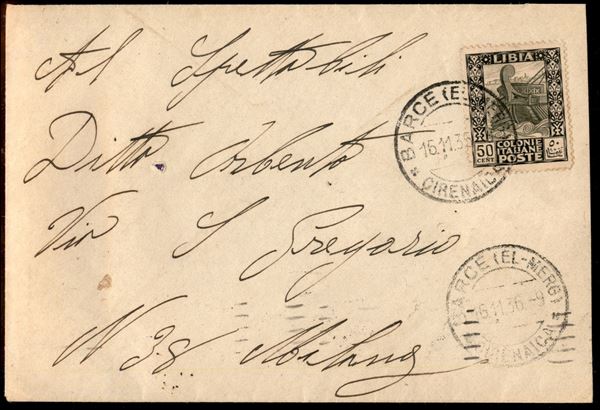 Al Spettabili
Ditto Orbento
Via S Gregorio
N 38 Milano
LIBIA
50
CENT
COLONIE
ITALIANE
POSTE
BARCE (EL-MERG)
16.11.36
CIRENAICA
BARCE (EL-MERG)
16.11.36.-9
CIRENAICA